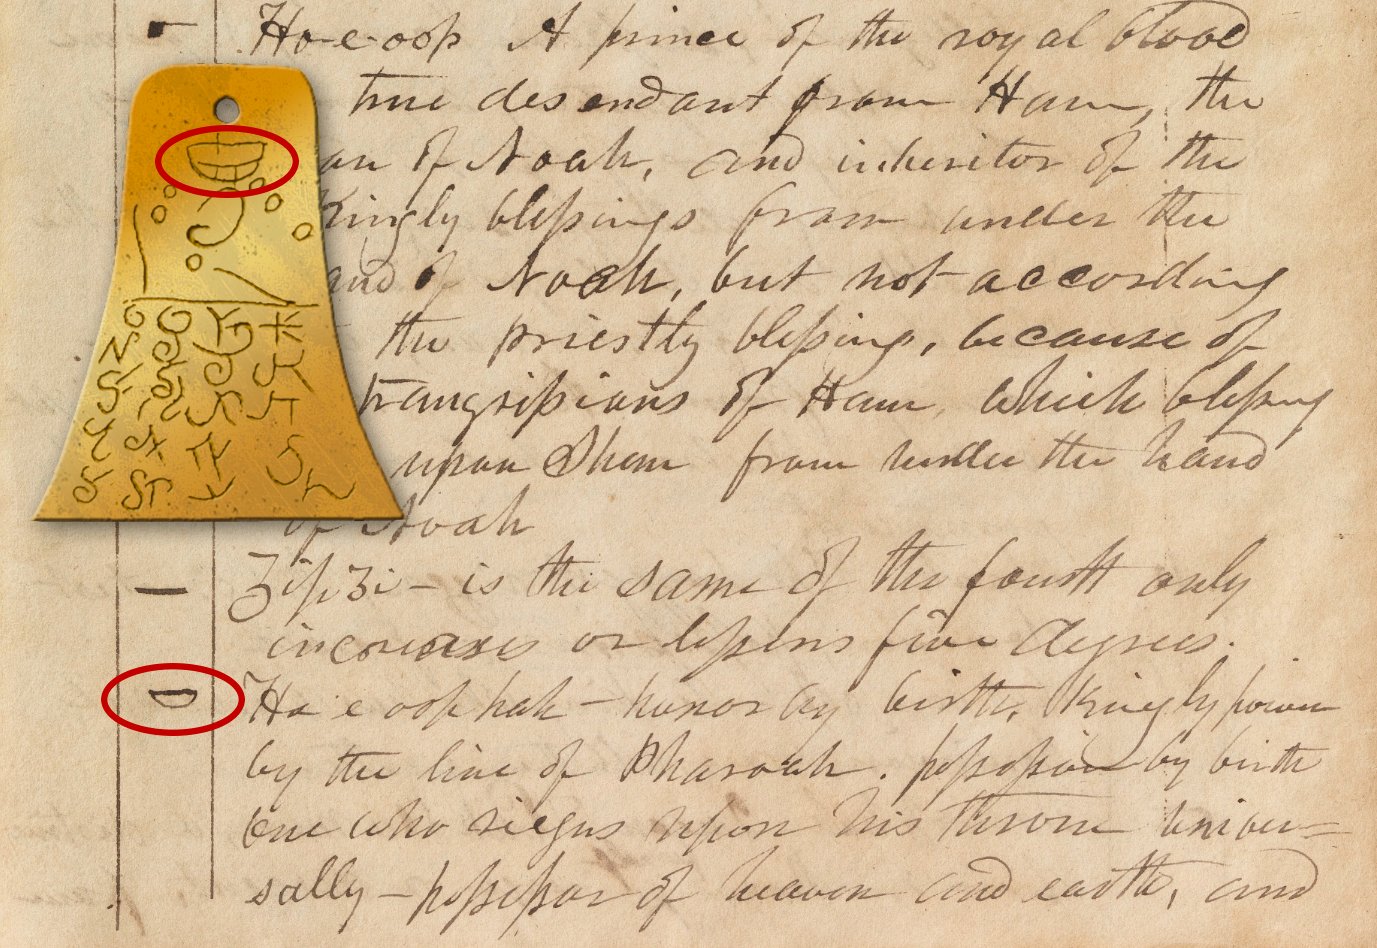 Ho-e-oop A prince of the royal blood
true desendant from Ham, the
of Noah, and inheritor of the
Kingly blessings from under the
of Noah, but not according
the priestly blessing, because of
trangrissions of Ham, which blessing
upon Shem from under the hand
of Noah
Zip Zi – is the same of the fourth only
increases or lessens five degrees.
Ho e oop hah – honor by birth, Kingly power
by the line of Pharoah. possession by birth
one who riegns upon his throne univer=
sally – possessor of heaven and earth, and